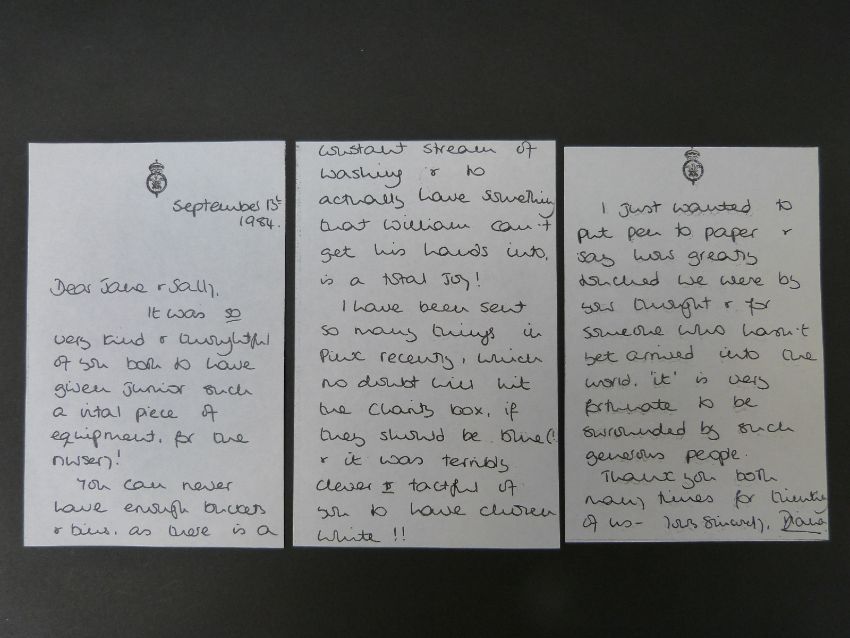 September 13t
1984.
Dear Jane & Sally,
It was so
very kind & thoughtful
of you both to have
given junior such
a vital piece of
equipment, for the
nursery!
You can never
have enough buckets
& bins, as there is a
constant stream of
washing & to
actually have something
that William can't
get his hands into,
is a total joy!
I have been sent
so many things in
Pink recently, which
no doubt will hit
the Charity box, if
they should be blue(!
& it was terribly
clever & tactful of
you to have chosen
white!!
I just wanted to
put pen to paper &
say how greatly
touched we were by
your thought & for
someone who hasn't
yet arrived into the
world, 'it' is very
fortunate to be
surrounded by such
generous people.
Thank you both
many times for thinking
of us - Yours sincerely, Diana